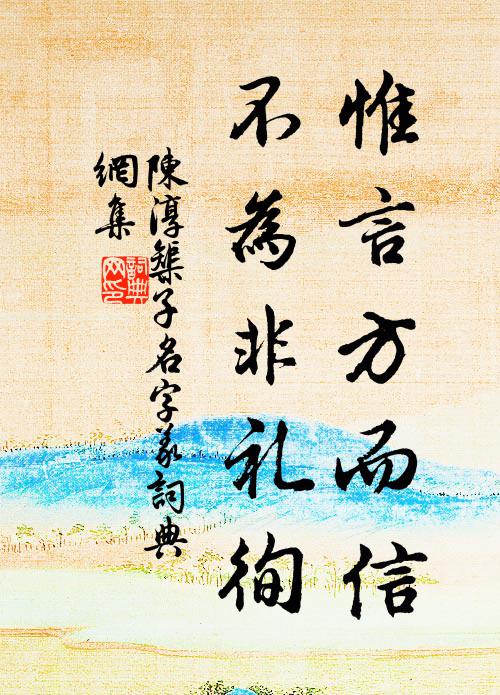 惟言方而信
不為非礼徇
陳淳榘子名字義詞典
網集
詞典網印